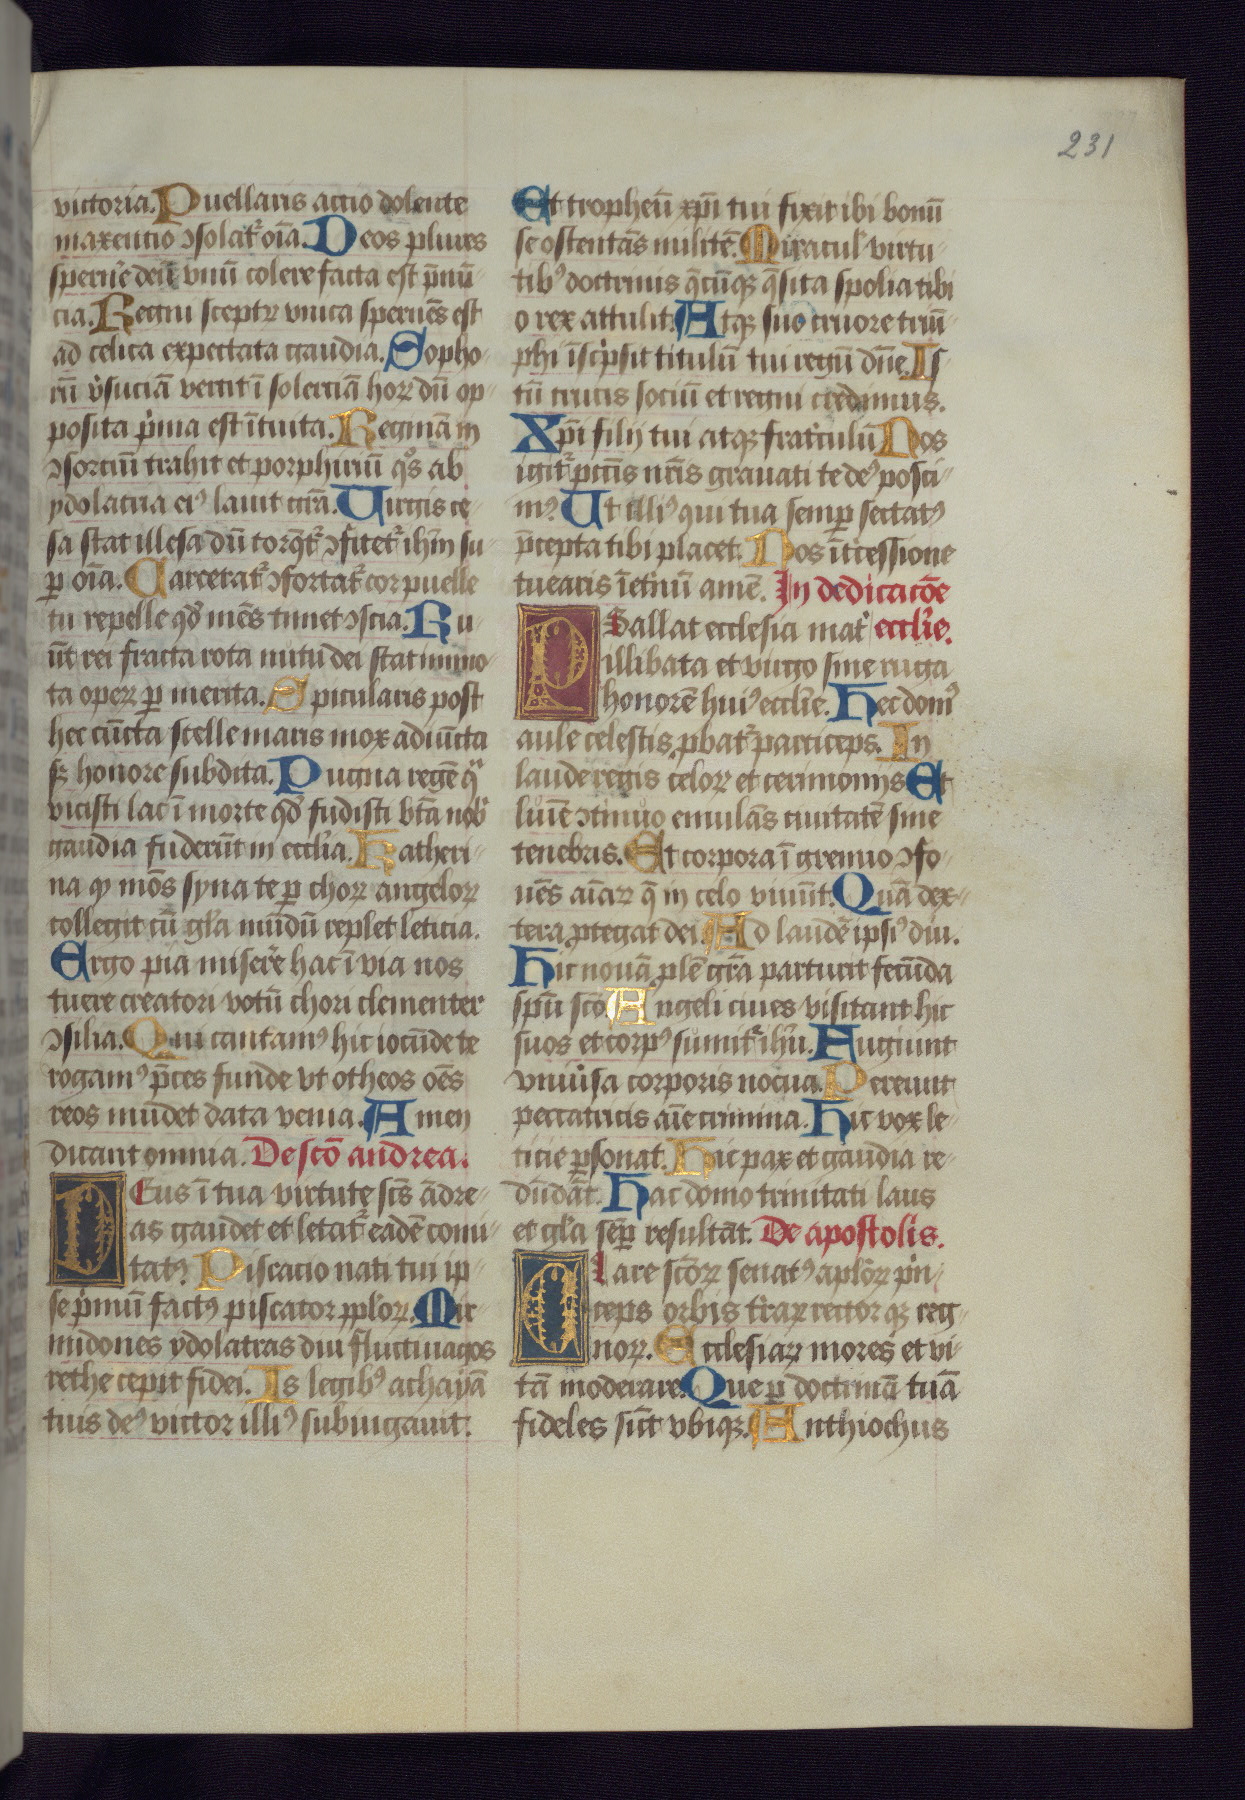 231
victoria. Puellaris actio dolente
maxentio ↄsolat᷑ oīa. Deos plures
spernē̄ deū vnū colere facta est p̄nū-
cia. Regni sceptꝝ vnica spernēs est
ad celica expectata gaudia. Sopho-
rū v̓suciā vertit ī solerciā hoꝝ dū op-
posita p̓ma est ītuita. Reginā in
ↄsorciū trahit et porphiriū q̊s ab
ydolatria ei᷒ lauit gr̄a. Virgis ce-
sa stat illesa dū torq̄t᷑ ↄfitet᷑ ih̄m su-
ꝑ oīa. Carcerat᷑ ↄfortat᷑ cor puelle
tu repelle qd̓ mēs timet ↄscia. Ru-
ūt rei fracta rota nutu dei stat immo-
ta opeꝝ ꝑ merita. Spicularis post
hec cūcta stelle maris mox adiūcta
sꝫ honore subdita. Pugna regē qͣ
vicisti lac ī morte qd̓ fudisti btā nob̓
gaudia fuderūt in eccl̓ia. Katheri-
na qꝫ mōs syna te ꝑ choꝝ angeloꝝ
collegit cū gl̓a mūdū replet leticia.
Ergo pia miser̓e hac ī via nos
tuere creatori votū chori clementer
ↄsilia. Qui cantam᷒ hic iocūde te
rogam᷒ p̄ces funde vt otheos oēs
reos mūdet data venia. Amen
dicant omnia. De sc̄o andrea.
DEus ī tua virtute sc̄s ādre-
as gaudet et letat᷑ eadē comi-
tat᷒ Piscacio nati tui ip-
se p̓mū fact᷒ piscator pp̄loꝝ. Mir-
midones ydolatras diu fluctiuagos
rethe cepit fidei. Is legib᷒ achayā
tuis de᷒ victor illi᷒ subiugauit.
Et tropheū xp̄i tui fixit ibi bonū
se ostentās militē. Miracul̓ virtu-
tib᷒ doctrinis q̄cūqꝫ q̄sita spolia tibi
o rex attulit. Atqꝫ suo cruore trium-
phi īsc̓psit titulū tui regū dn̄e. Is-
tū crucis sociū et regni credimus.
Xp̄i filij tui atqꝫ frat̓culū Nos
igit᷑ pc̄tis nr̄is grauati te de᷒ posci-
m᷒. Ut illi᷒ qui tua semꝑ sectat᷒
p̄cepta tibi placet. Nos īt̓cessione
tuearis ī et̓nū amē. In dedicacōe
PSallat ecclesia mat̓ eccl̓ie.
illibata et virgo sine ruga
honorē hui᷒ eccl̓ie. Hec dom᷒
aule celestis ꝓbat᷑ particeps. In
laude regis celoꝝ et cerimonijs Et
lumīē ↄtinuo emulās ciuitatē sine
tenebris. Et corpora ī gremio ↄfo-
uēs aīaꝝ q̄ in celo viuūt. Quā dex-
tera ꝓtegat dei. Ad laudē ipsi᷒ diu.
Hic nouā ꝓlē gr̄a parturit fecūda
spū sc̄o. Angeli ciues visitant hic
suos et corp᷒ sumit᷑ ih̄u. Fugiunt
vniu̓sa corporis nociua. Pereunt
peccatricis aīe crimina. Hic vox le-
ticie ꝑsonat. Hic pax et gaudia re-
dūdāt. Hac domo trinitati laus
et gl̓a semꝑ resultāt. De apostolis.
CLare sc̄oꝝ senat᷒ apl̓oꝝ p̓n-
ceps orbis t̓raꝝ rector qꝫ reg-
noꝝ. Ecclesiaꝝ mores et vi-
tā moderare. Que ꝑ doctrinā tuā
fideles sūt vbiqꝫ. Anthiochus